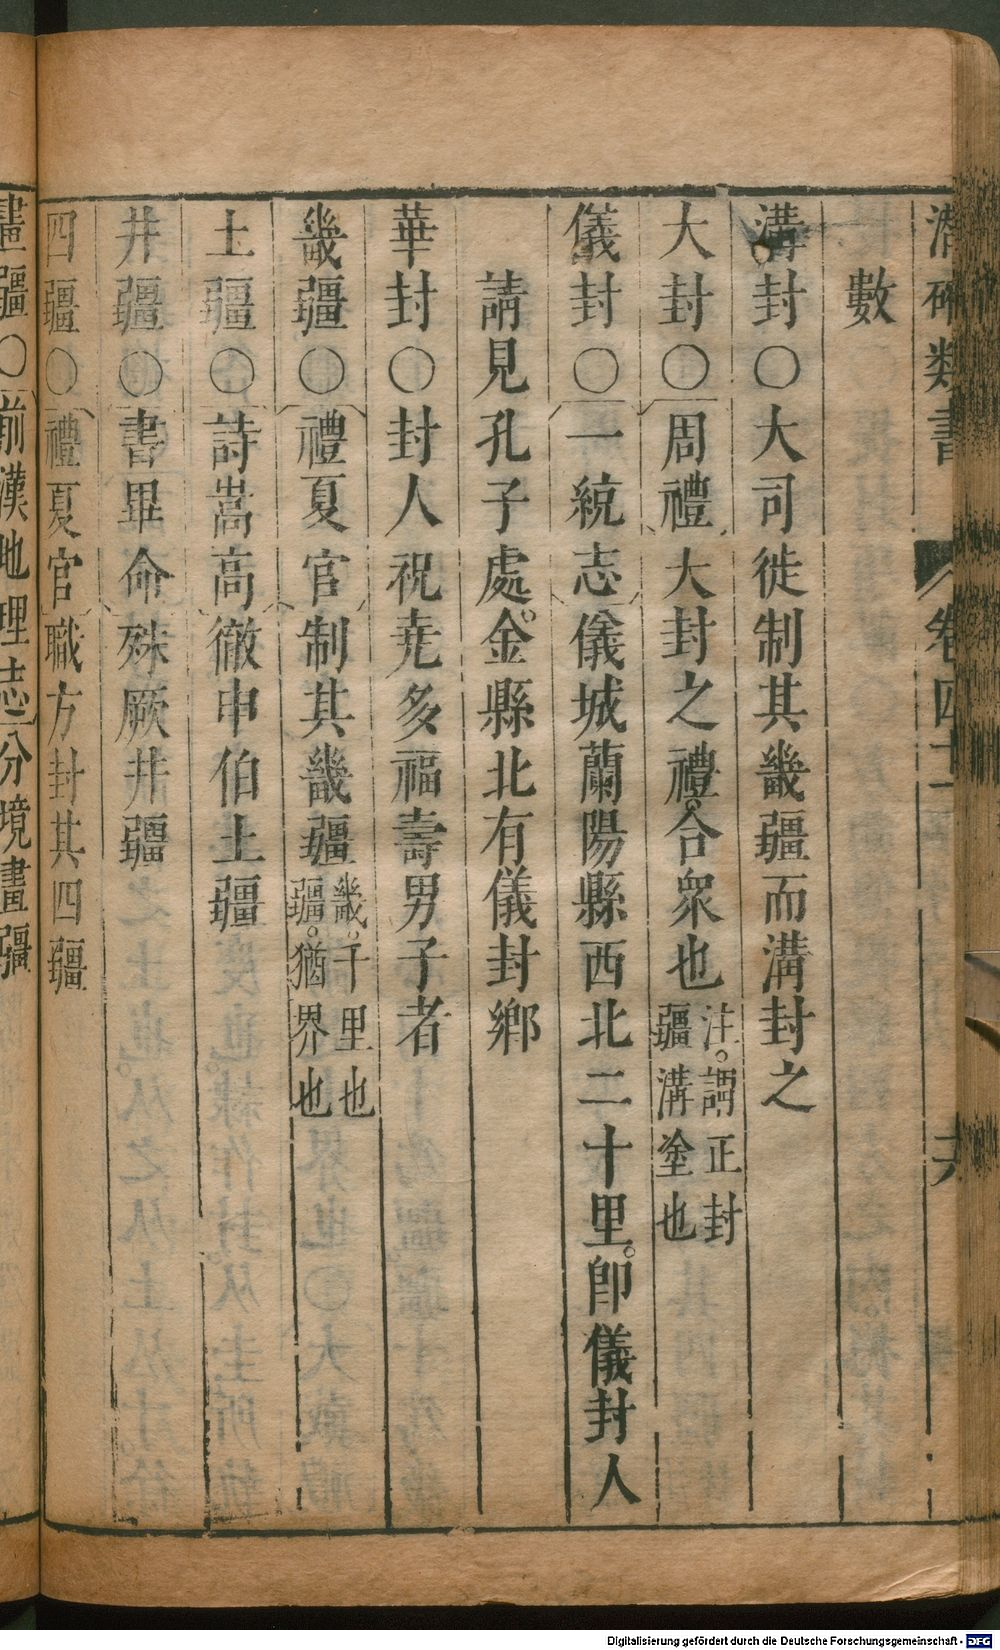 潛確類書 卷四十二 十六
數
溝封○大司徙制其畿疆而溝封之
大封○周禮大封之禮。合眾也注。謂正封疆溝塗也
儀封○一統志儀城蘭陽縣西北二十里。卽儀封人
請見孔子處。金縣北有儀封鄉
華封○封人祝堯多福壽男子者
畿疆○禮夏官制其畿疆畿。千里也疆。猶界也
土疆○詩嵩高徹申伯土疆
井疆○書畢命殊厥井疆
四疆○禮夏官職方封其四疆
畫疆○前漢地理志分境畫疆
Digitalisierung gefördert durch die Deutsche Forschungsgemeinschaft - DFG